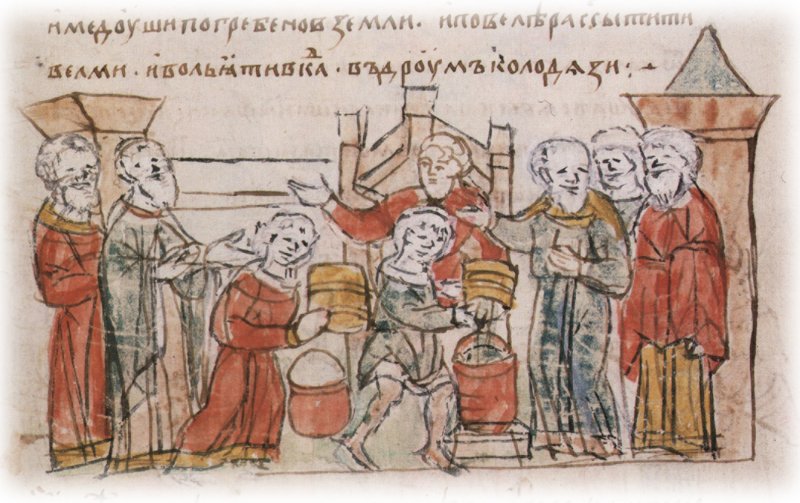 и медоуши погребенов земли · и повелѣ рассытити
велми · и вольꙗти в кⷣа · въ дроумъ колодязи :~